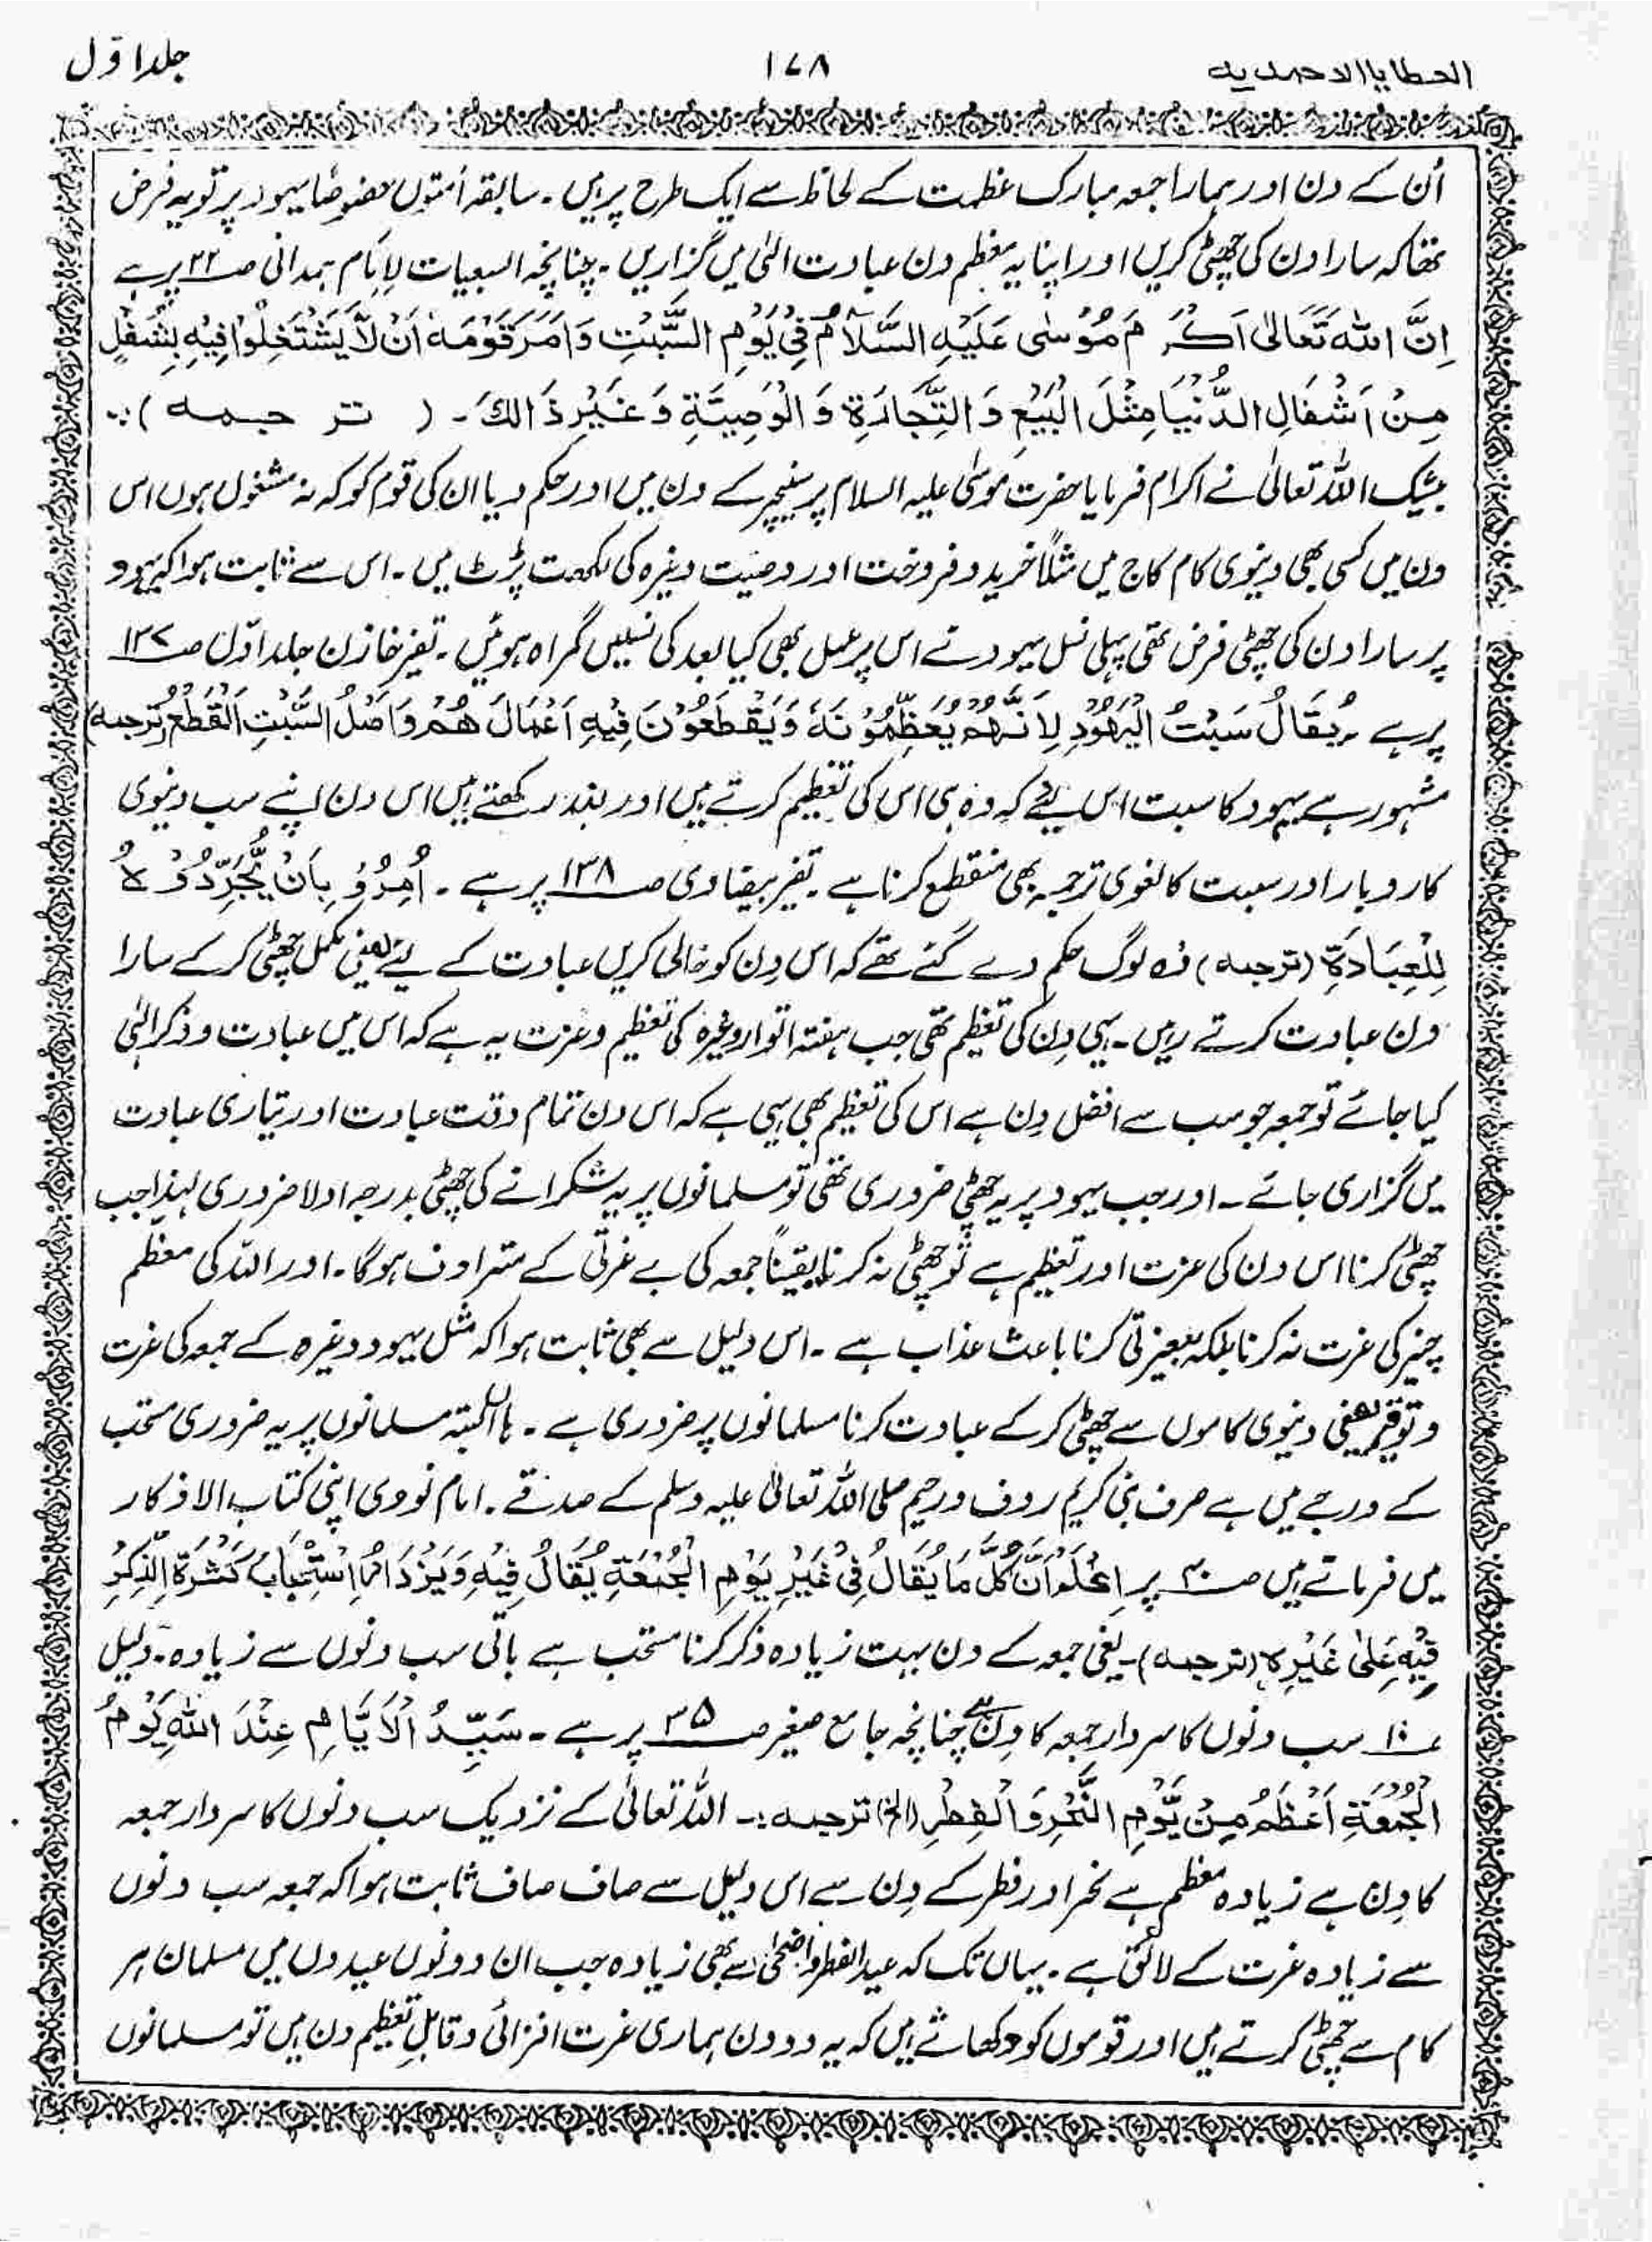 العطایا الاحمدیہ ۱۷۸ جلد اوّل
اُن کے دن اور ہمارا جمعہ مبارک عظمت کے لحاظ سے ایک طرح پر ہیں۔ سابقہ اُمتوں خصوصًا یہود پر تو یہ فرض
تھا کہ سارا دن کی چھٹی کریں اور اپنا یہ معظم دن عبادت الٰہی میں گزاریں۔ چنانچہ السبعیات لِاِمَام ہمدانی صـ۲۲ پر ہے
اِنَّ اللهَ تَعَالٰی اَكْرَمَ مُوْسٰی عَلَيْهِ السَّلَامُ فِیْ يَوْمِ السَّبْتِ وَاَمَرَ قَوْمَهٗ اَنْ لَّا يَشْتَغِلُوْا فِيْهِ بِشُغْلٍ
مِنْ اَشْغَالِ الدُّنْيَا مِثْلَ الْبَيْعِ وَ التِّجَارَةِ وَ الْوَصِيَّةِ وَ غَيْرِ ذَالِكَ۔ (ترجمہ):۔
بیشک اللہ تعالیٰ نے اکرام فرمایا حضرت موسٰی علیہ السلام پر سنیچر کے دن میں اور حکم دیا ان کی قوم کو کہ نہ مشغول ہوں اس
دن میں کسی بھی دنیوی کام کاج میں مثلًا خرید و فروخت اور وصیت وغیرہ کی لکھت پڑت میں۔ اس سے ثابت ہوا کہ یہود
پر سارا دن کی چھٹی فرض تھی پہلی نسل یہود نے اس پر عمل بھی کیا بعد کی نسلیں گمراہ ہوئیں۔ تفسیر خازن جلد اوّل صـ۱۳۷
پر ہے۔ يُقَالُ سَبْتُ الْيَهُوْدِ لِاَنَّهُمْ يُعَظِّمُوْنَهٗ وَ يَقْطَعُوْنَ فِيْهِ اَعْمَالَهُمْ وَ اَصْلُ السَّبْتِ الْقَطْعُ (ترجمہ)
مشہور ہے یہود کا سبت اس لیئے کہ وہ ہی اس کی تعظیم کرتے ہیں اور بند رکھتے ہیں اس دن اپنے سب دنیوی
کاروبار اور سبت کا لغوی ترجمہ بھی منقطع کرنا ہے۔ تفسیر بیضاوی صـ۱۳۸ پر ہے۔ اُمِرُوْا بِاَنْ يُّجَرِّدُوْهُ
لِلْعِبَادَةِ (ترجمہ) وُہ لوگ حکم دے گئے تھے کہ اس دِن کو خالی کریں عبادت کے لیئے یعنی مکمل چھٹی کر کے سارا
دن عبادت کرتے رہیں۔ یہی دِن کی تعظیم تھی جب ہفتہ اتوار وغیرہ کی تعظیم و عزت یہ ہے کہ اس میں عبادت و ذکر الٰہی
کیا جائے تو جمعہ جو سب سے افضل دِن ہے اس کی تعظیم بھی یہی ہے کہ اس دن تمام وقت عبادت اور تیاری عبادت
میں گزاری جائے۔ اور جب یہود پر یہ چھٹی ضروری تھی تو مسلمانوں پر یہ شکرانے کی چھٹی بدرجہ اولا ضروری لہٰذا جب
چھٹی کرنا اس دن کی عزت اور تعظیم ہے تو چھٹی نہ کرنا یقینًا جمعہ کی بے عزتی کے مترادف ہوگا۔ اور اللہ کی معظم
چیز کی عزت نہ کرنا بلکہ بیعزتی کرنا باعث عذاب ہے۔ اس دلیل سے بھی ثابت ہوا کہ مثل یہود وغیرہ کے جمعہ کی عزت
و توقیر یعنی دنیوی کاموں سے چھٹی کر کے عبادت کرنا مسلمانوں پر ضروری ہے۔ ہاں البتہ مسلمانوں پر یہ ضروری مستحب
کے درجے میں ہے صرف نبی کریم روف و رحیم صلی اللہ تعالیٰ علیہ وسلم کے صدقے۔ امام نووی اپنی کتاب الاذکار
میں فرماتے ہیں صـ پر اِعْلَمْ اَنَّ كُلَّ مَا يُقَالُ فِیْ غَيْرِ يَوْمِ الْجُمُعَةِ يُقَالُ فِيْهِ وَ يَزْدَادُ اِسْتِحْبَابُ كَثْرَةِ الذِّكْرِ
فِيْهِ عَلٰی غَيْرِهٖ (ترجمہ)۔ یعنی جمعہ کے دن بہت زیادہ ذکر کرنا مستحب ہے باقی سب دنوں سے زیادہ۔ دلیل
؏۱۰ سب دنوں کا سردار جمعہ کا دِن ہے چنانچہ جامع صغیر صـ۳۵ پر ہے۔ سَيِّدُ الْاَيَّامِ عِنْدَ اللهِ يَوْمُ
الْجُمُعَةِ اَعْظَمُ مِنْ يَّوْمِ النَّحْرِ وَ الْفِطْرِ (الخ) ترجمہ:۔ اللہ تعالیٰ کے نزدیک سب دنوں کا سردار جمعہ
کا دِن ہے زیادہ معظم ہے نحر اور فطر کے دِن سے اس دلیل سے صاف صاف ثابت ہوا کہ جمعہ سب دنوں
سے زیادہ عزت کے لائق ہے۔ یہاں تک کہ عید الفطر و اضحٰی سے بھی زیادہ جب ان دونوں عیدوں میں مسلمان ہر
کام سے چھٹی کرتے ہیں اور قوموں کو دکھاتے ہیں کہ یہ دو دن ہماری عزت افزائی و قابلِ تعظیم دن ہیں تو مسلمانوں